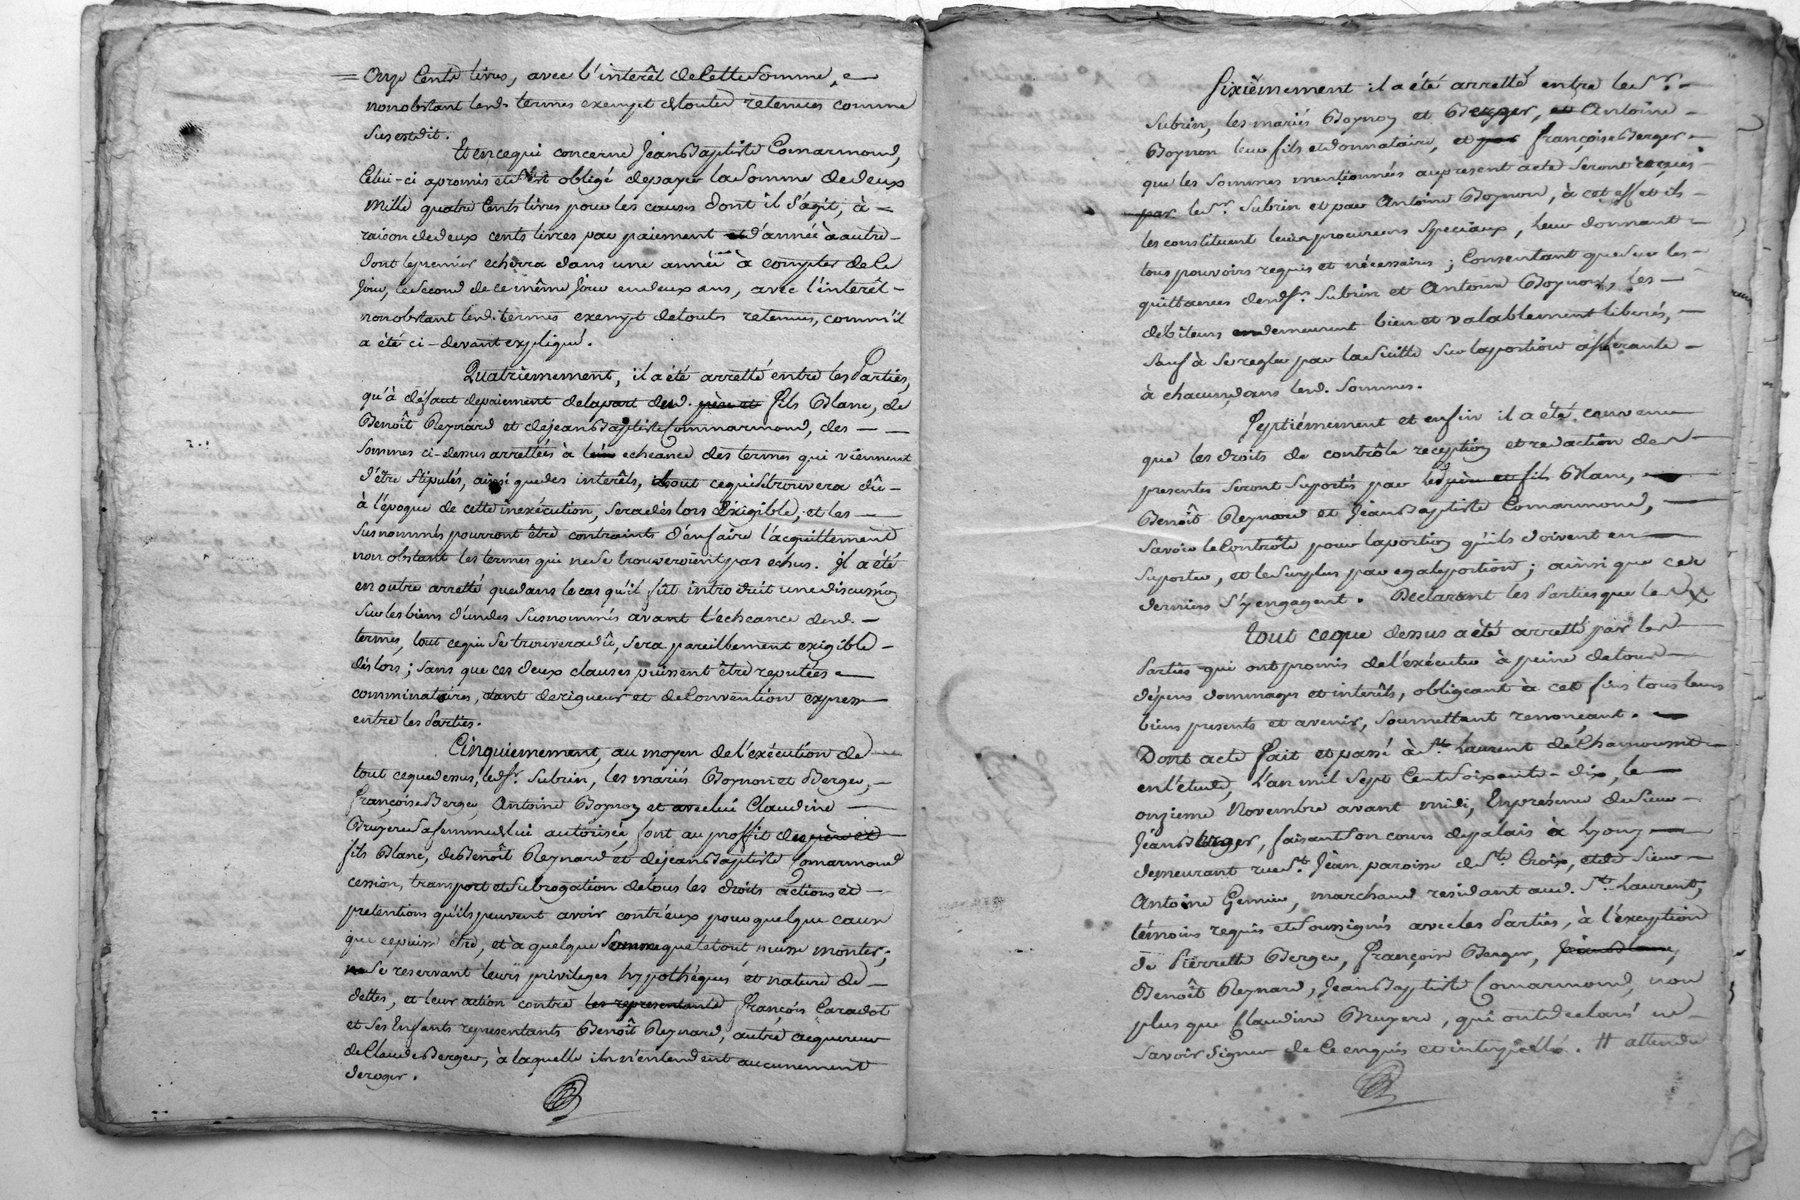 = Onze Cents livres, avec l'interêt de Cette Somme, e
nonobstant lesd. termes exempt de toutes retenues comme
Sus est dit.
Et en ce qui concerne Jean Baptiste Comarmond,
Celui-ci a promis et s'est obligé de payer la Somme de deux
mille quatre Cents livres pour les causes dont il s'agit, à
raison de deux cents livres par paiement et d'année à autre
dont le premier echerra dans une année à compter de Ce
Jour, le Second de ce même Jour en deux ans, avec l'interêt
nonobstant lesd. termes exempt de toutes retenues, comm'il
a été ci-devant expliqué.
Quatriemement, il a été arretté entre les Parties,
qu'à défaut de paiement de la part desd. père et fils Blanc, de
Benoît Reynard et de Jean Baptiste Commarmond, des
Sommes ci-dessus arrettées à leur echeance des termes qui viennent
d'être Stipulés, ainsi que des interêts, tout ce qui se trouvera dû
à l'époque de cette inexécution, Sera dès lors Exigible, et les
Susnommés pourront être contraints d'en faire l'acquittement
non obstant les termes qui ne Se trouveroient pas échus. Il a été
en outre arretté que dans le cas qu'il fût introduit une discussion
Sur les biens d'un des Susnommés avant l'échéance desd.
termes, tout ce qui Se trouvera dû, Sera pareillement exigible
dès lors; Sans que ces deux clauses puissent être reputées
comminatoires, etant de rigueur et de Convention expresse
entre les Parties.
Cinquiemement, au moyen de l'exécution de
tout ce que dessus, led. Sr. Subrin, les mariés Boynon et Berger,
Françoise Berger, Antoine Boynon et avec lui Claudine
Bruyere Sa femme de lui autorisée, font au proffit des père et
fils Blanc, de Benoît Reynard et de Jean Baptiste Comarmond
cession, transport et Subrogation de tous les droits actions et
pretentions qu'ils peuvent avoir contr'eux pour quelque cause
que ce puisse être, et à quelque Somme que le tout puisse monter;
ne Se reservant leurs privileges hypothéques et nature de
dettes, et leur action contre les representants François Caradot
et Ses Enfants representants Benoît Reynard, autre acquereur
de Claude Berger, à laquelle ils n'entendent aucunement
deroger.
Sixiêmement il a été arretté entre le Sr.
Subrin, les mariés Boynon et Berger, et Antoine
Boynon leur fils et donnataire, et par Françoise Berger
que les Sommes mentionnées au present acte Seront reçues
par le Sr. Subrin et par Antoine Boynon, à cet effet ils
les constituent leurs procureurs Speciaux, leur donnant
tous pouvoirs requis et nécessaires; Consentant que Sur les
quittances desd. Sr. Subrin et Antoine Boynon, les
débiteurs en demeurent bien et valablement liberés,
Sauf à Se regler par la Suitte Sur la portion afferante
à chacun dans lesd. Sommes.
Septiémement et enfin il a été convenu
que les droits de contrôle reception et redaction des
presentes Seront Suportés par les père et fils Blanc,
Benoît Reynard et Jean Baptiste Comarmond,
Savoir le Contrôle pour la portion qu'ils doivent en
Suporter, et le Surplus par egale portion; ainsi que ces
derniers S'y engagent. Déclarant les Parties que les
Tout ce que dessus a été arretté par les
Parties qui ont promis de l'exécuter à peine de tous
dépens dommages et interêts, obligeant à cet fins tous leurs
biens presents et avenir, Soumettant renonçant.
Dont acte fait et passé à St. Laurent de Chamousset
en l'étude, L'an mil Sept Cent Soixante-dix, le
onzieme Novembre avant midi, En présence du Sieur
Jean Berger, faisant Son cours de palais à Lyon
demeurant rue St. Jean paroisse de Ste. Croix, et de Sieur
Antoine Genier, marchand residant aud. St. Laurent,
témoins requis et Soussignés avec les Parties, à l'exception
de Pierrette Berger, Françoise Berger, Jean Blanc,
Benoît Reynard, Jean Baptiste Comarmond, non
plus que Claudine Bruyere, qui ont declaré ne
Savoir Signer de Ce enquis et interpellé. # attendu